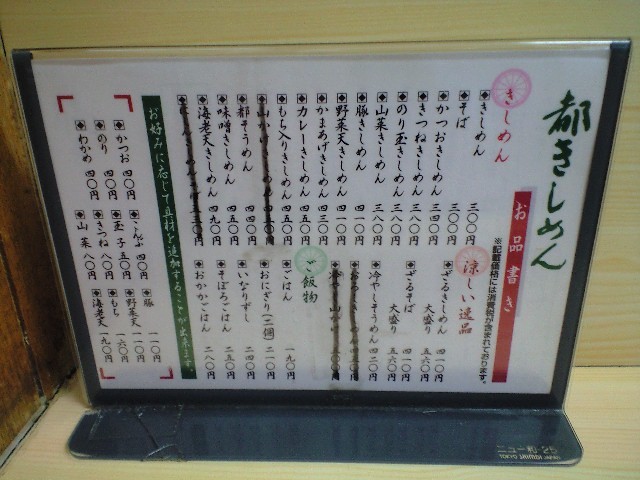 都きしめん
お品書き
※記載価格には消費税が含まれております。
きしめん
きしめん 三〇〇円
そば 三〇〇円
かつおきしめん 三四〇円
きつねきしめん 三八〇円
のり玉きしめん 三八〇円
山菜きしめん 三八〇円
豚きしめん 四一〇円
野菜天きしめん 四一〇円
かまあげきしめん 四三〇円
カレーきしめん 四五〇円
もち入りきしめん 四五〇円
都そうめん 四〇〇円
味噌きしめん 四五〇円
海老天きしめん 四九〇円
涼しい逸品
ざるきしめん 四一〇円
大盛り 五六〇円
ざるそば 四一〇円
大盛り 五六〇円
冷やしそうめん 四二〇円
ご飯物
ごはん 一九〇円
おにぎり(二個) 二一〇円
いなりずし 二四〇円
そぼろごはん 二五〇円
おかかごはん 二八〇円
お好みに応じて具材を追加することが出来ます。
かつお 四〇円
のり 四〇円
わかめ 四〇円
こんぶ 四〇円
玉子 五〇円
きつね 八〇円
山菜 八〇円
豚 一一〇円
野菜天 一一〇円
もち 一六〇円
海老天 一九〇円